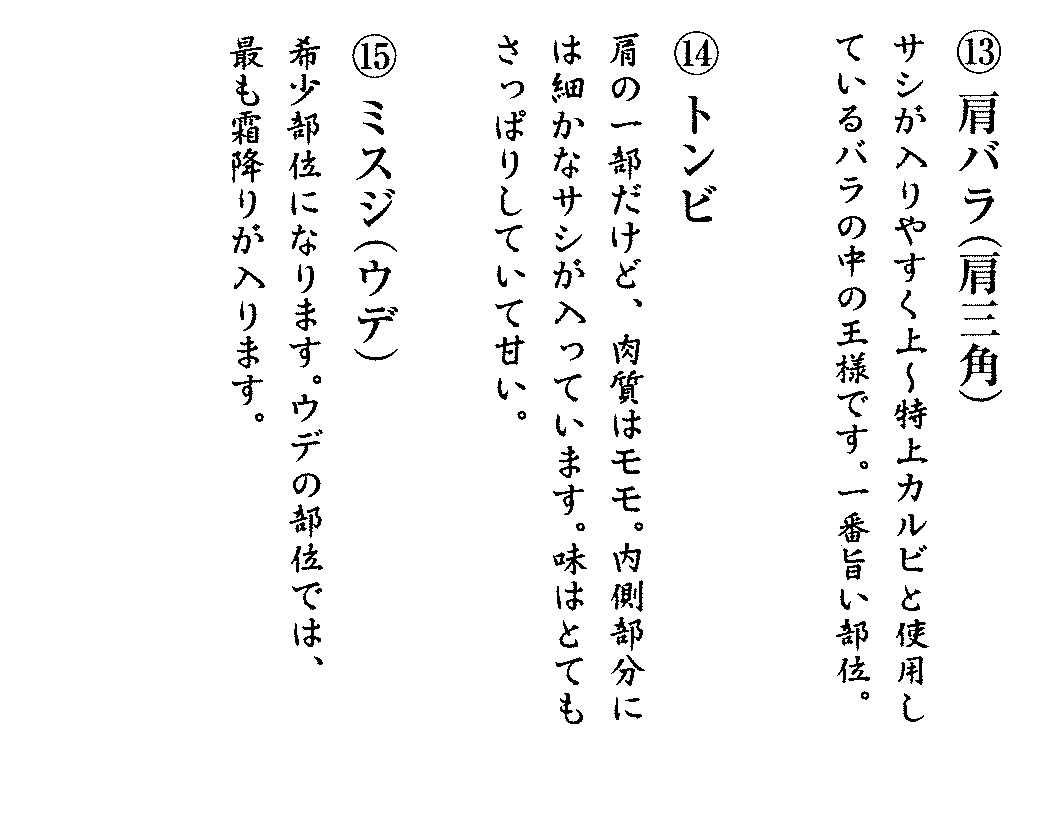 ⑬ 肩バラ(肩三角)
サシが入りやすく上～特上カルビと使用し
ているバラの中の王様です。一番旨い部位。
⑭ トンビ
肩の一部だけど、肉質はモモ。内側部分に
は細かなサシが入っています。味はとても
さっぱりしていて甘い。
⑮ ミスジ(ウデ)
希少部位になります。ウデの部位では、
最も霜降りが入ります。